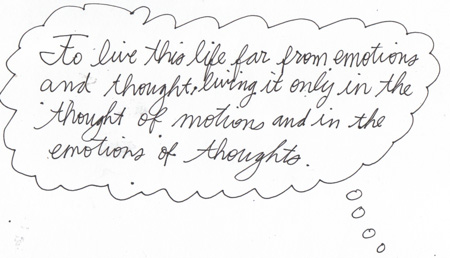 To live this life far from emotions
and thought, living it only in the
thought of motions and in the
emotions of thoughts.